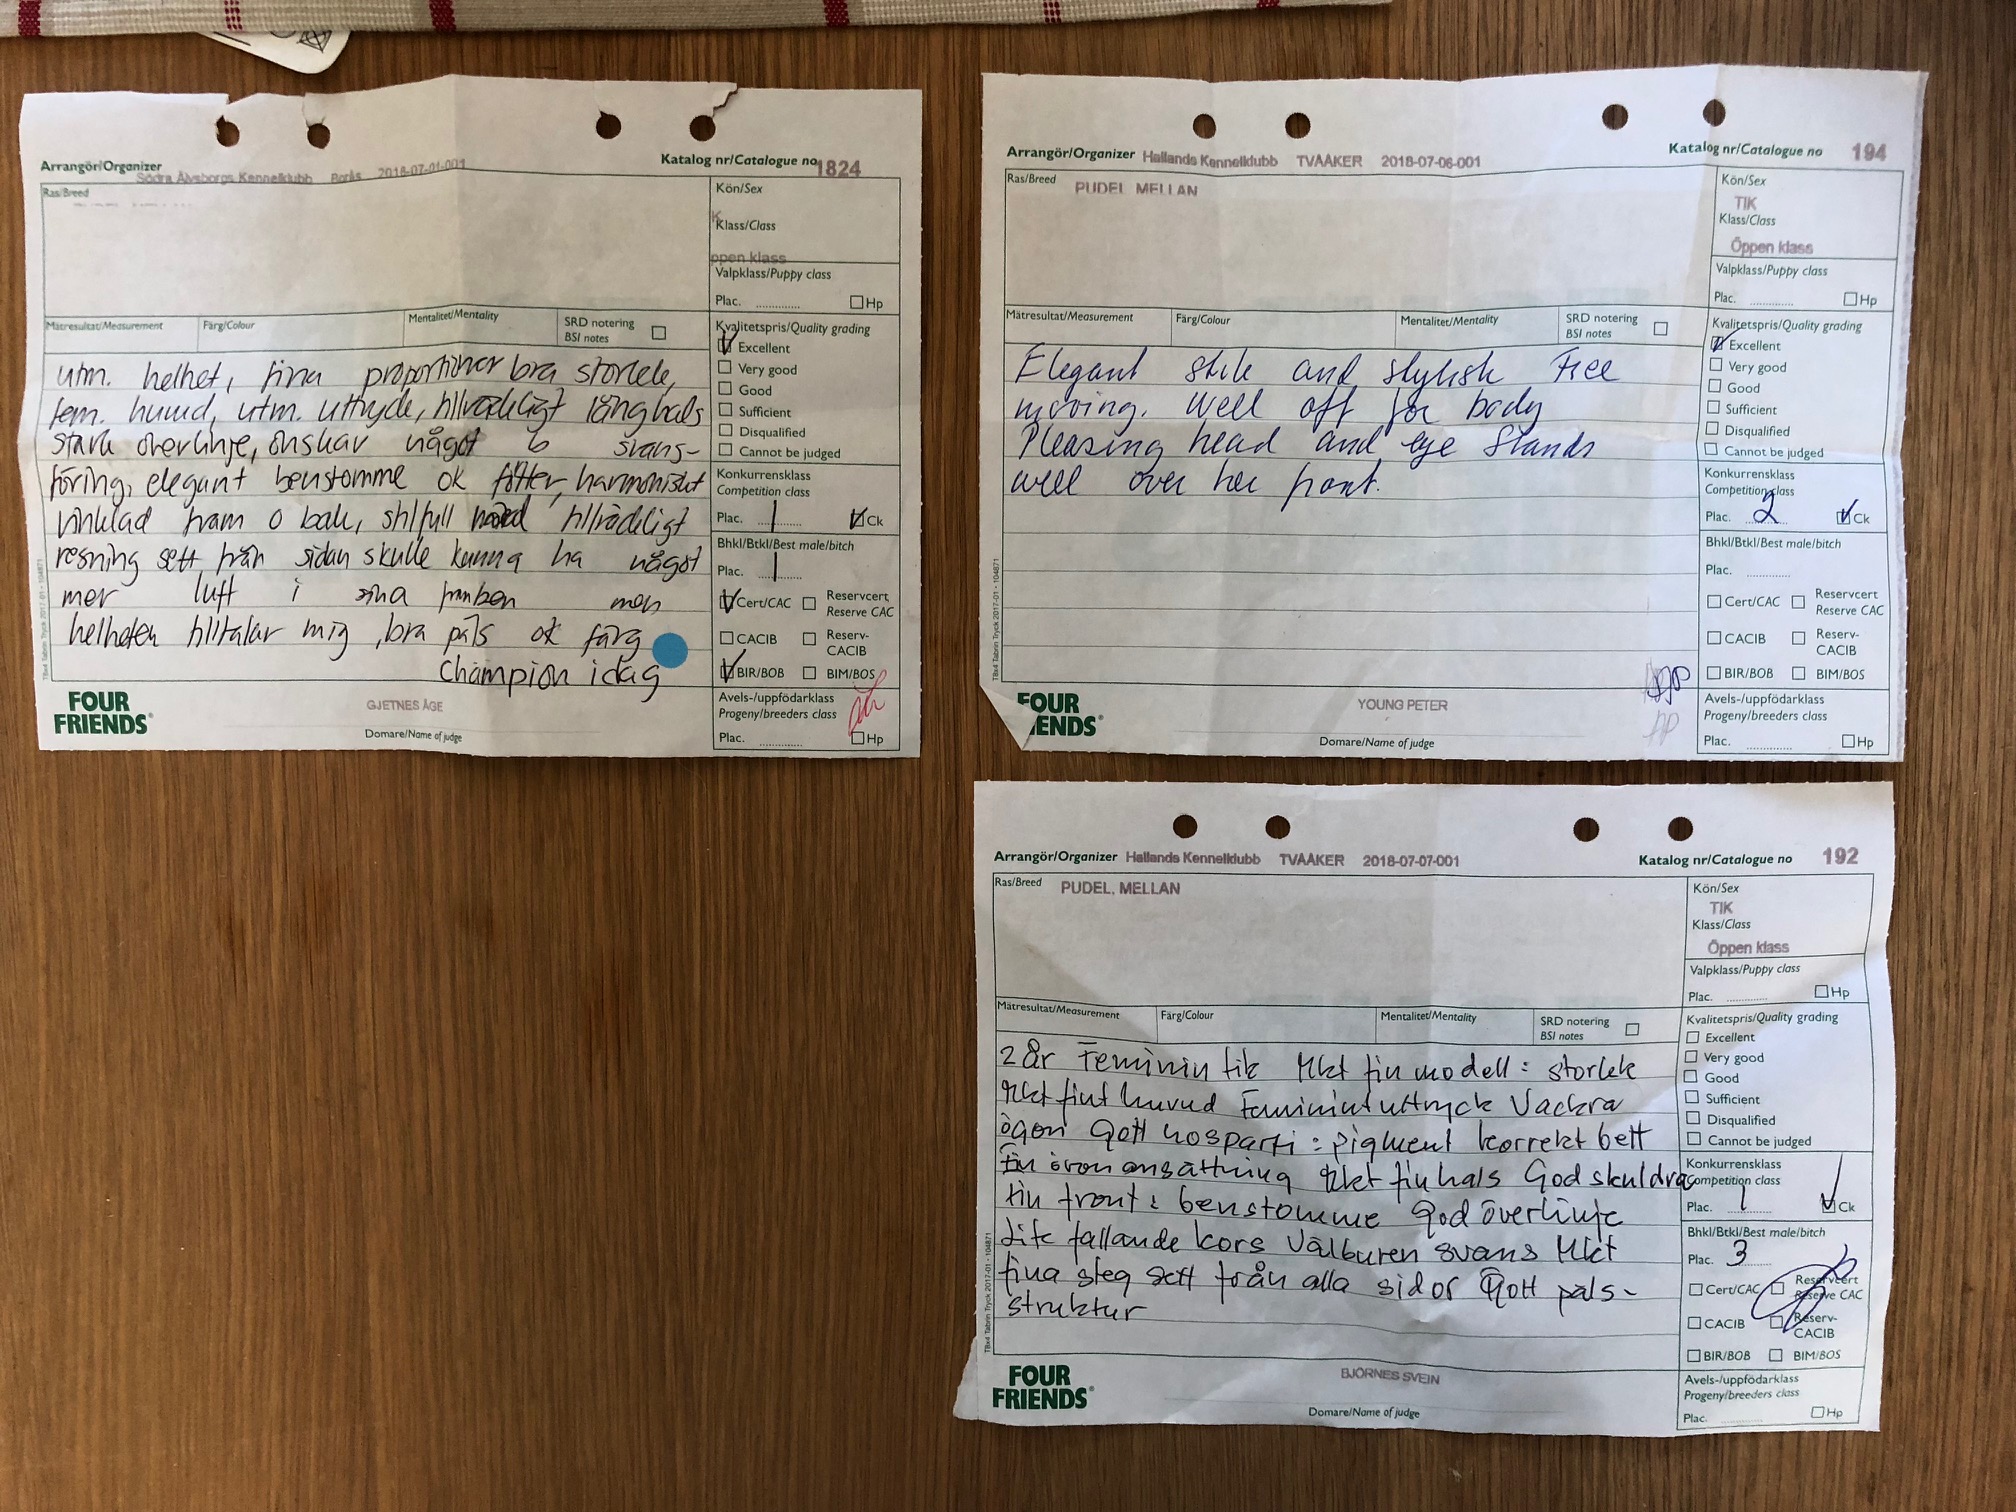 Arrangör/Organizer Södra Älvsborgs Kennelklubb Borås 2018-07-01-001 Katalog nr/Catalogue no 1824
Ras/Breed
Kön/Sex
K
Klass/Class
ppen klass
Valpklass/Puppy class
Plac. Hp
Mätresultat/Measurement Färg/Colour Mentalitet/Mentality SRD notering
BSI notes
Kvalitetspris/Quality grading
Excellent
Very good
Good
Sufficient
Disqualified
Cannot be judged
Konkurrensklass
Competition class
Plac. 1 Ck
Bhkl/Btkl/Best male/bitch
Plac. 1
Cert/CAC Reservcert
Reserve CAC
CACIB Reserv-
CACIB
BIR/BOB BIM/BOS
Avels-/uppfödarklass
Progeny/breeders class
Plac. Hp
utm. helhet, fina proportioner bra storlek,
fem. huvud, utm. uttryck, tillräckligt lång hals
stark överlinje, önskar något svans-
föring, elegant benstomme ok fötter, harmoniskt
vinklad fram o bak, stilfull med tillräckligt
resning sett från sidan skulle kunna ha något
mer luft i sina framben men
helheten tilltalar mig, bra päls ok färg
Champion idag
FOUR
FRIENDS
GJETNES ÅGE
Domare/Name of judge
TBx4 Tabrin Tryck 2017-01 - 104871
Arrangör/Organizer Hallands Kennelklubb TVÅÅKER 2018-07-06-001 Katalog nr/Catalogue no 194
Ras/Breed PUDEL MELLAN
Kön/Sex
TIK
Klass/Class
Öppen klass
Valpklass/Puppy class
Plac. Hp
Mätresultat/Measurement Färg/Colour Mentalitet/Mentality SRD notering
BSI notes
Kvalitetspris/Quality grading
Excellent
Very good
Good
Sufficient
Disqualified
Cannot be judged
Konkurrensklass
Competition class
Plac. 2 Ck
Bhkl/Btkl/Best male/bitch
Plac.
Cert/CAC Reservcert
Reserve CAC
CACIB Reserv-
CACIB
BIR/BOB BIM/BOS
Avels-/uppfödarklass
Progeny/breeders class
Plac. Hp
Elegant stile and stylish Free
moving. Well off for body
Pleasing head and eye Stands
well over her front.
FOUR
IENDS
YOUNG PETER
Domare/Name of judge
TBx4 Tabrin Tryck 2017-01 - 104871
Arrangör/Organizer Hallands Kennelklubb TVÅÅKER 2018-07-07-001 Katalog nr/Catalogue no 192
Ras/Breed PUDEL, MELLAN
Kön/Sex
TIK
Klass/Class
Öppen klass
Valpklass/Puppy class
Plac. Hp
Mätresultat/Measurement Färg/Colour Mentalitet/Mentality SRD notering
BSI notes
Kvalitetspris/Quality grading
Excellent
Very good
Good
Sufficient
Disqualified
Cannot be judged
Konkurrensklass
Competition class
Plac. 1 Ck
Bhkl/Btkl/Best male/bitch
Plac. 3
Cert/CAC Reservcert
Reserve CAC
CACIB Reserv-
CACIB
BIR/BOB BIM/BOS
Avels-/uppfödarklass
Progeny/breeders class
Plac. Hp
2 år Feminin tik Mkt fin modell : storlek
Mkt fint huvud Feminint uttryck Vackra
ögon Gott nosparti : pigment korrekt bett
Fin öronansättning Mkt fin hals God skuldra
fin front : benstomme God överlinje
Lite fallande kors Välburen svans Mkt
fina steg sett från alla sidor Gott päls-
struktur
FOUR
FRIENDS
BJÖRNES SVEIN
Domare/Name of judge
TBx4 Tabrin Tryck 2017-01 - 104871